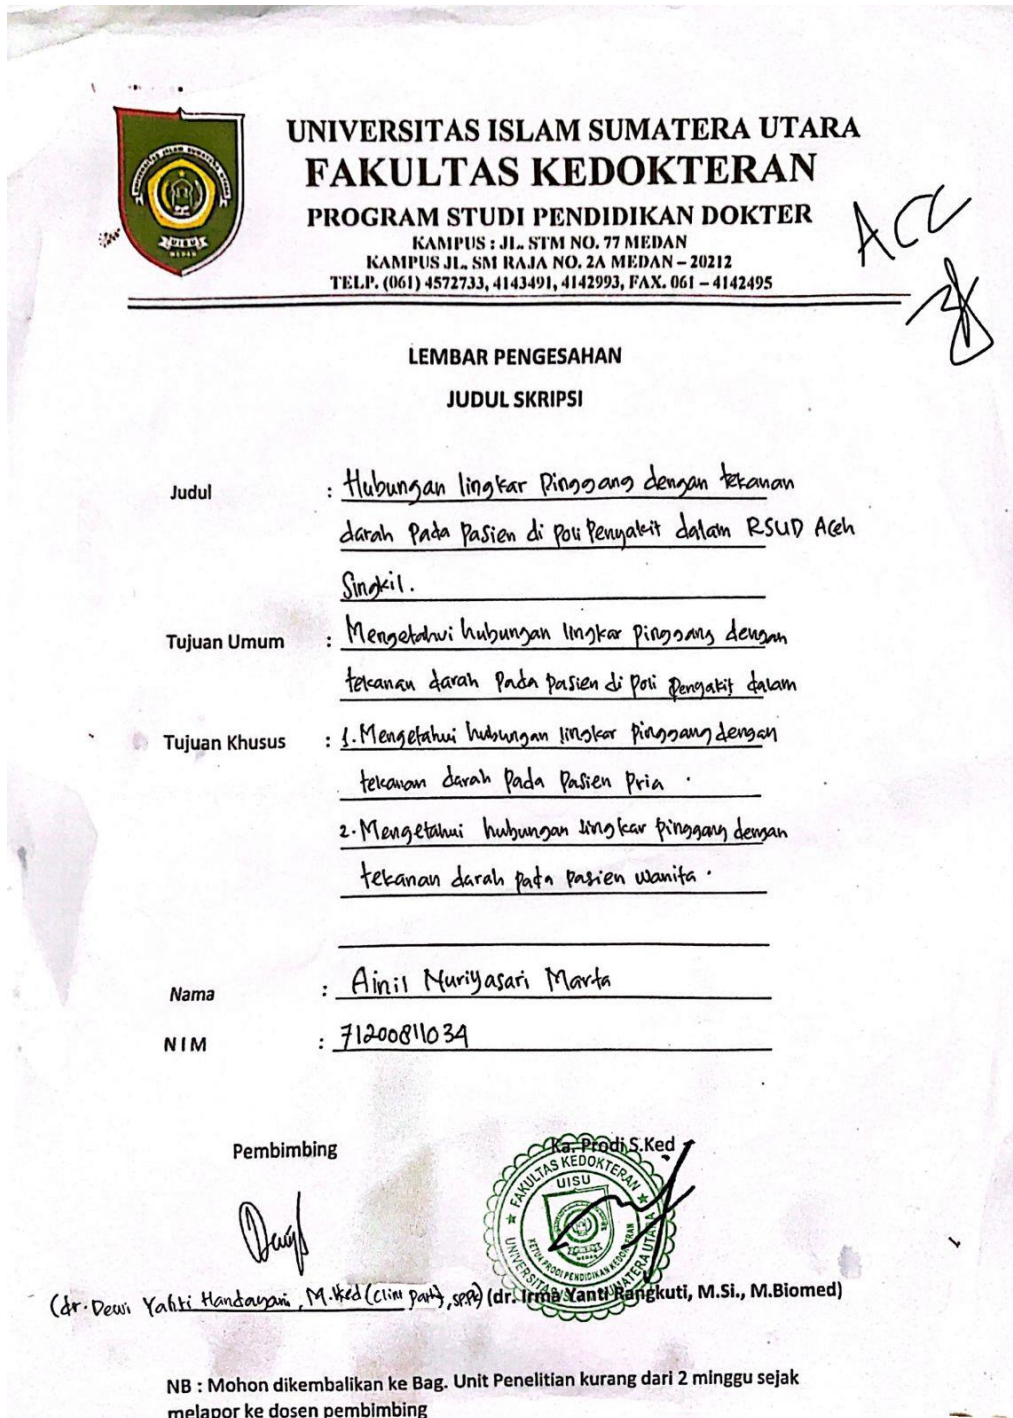 UNIVERSITAS ISLAM SUMATERA UTARA
FAKULTAS KEDOKTERAN
PROGRAM STUDI PENDIDIKAN DOKTER
KAMPUS : JL. STM NO. 77 MEDAN
KAMPUS JL. SM RAJA NO. 2A MEDAN – 20212
TELP. (061) 4572733, 4143491, 4142993, FAX. 061 – 4142495
ACC
LEMBAR PENGESAHAN
JUDUL SKRIPSI
Judul : Hubungan lingkar Pinggang dengan tekanan
darah Pada Pasien di Poli Penyakit dalam RSUD Aceh
Singkil.
Tujuan Umum : Mengetahui hubungan lingkar pinggang dengan
tekanan darah Pada pasien di Poli Penyakit dalam
Tujuan Khusus : 1. Mengetahui hubungan lingkar pinggang dengan
tekanan darah Pada Pasien Pria .
2. Mengetahui hubungan lingkar pinggang dengan
tekanan darah pada pasien wanita .
Nama : Ainil Nuriyasari Marta
NIM : 71200811034
Pembimbing Ka. Prodi S.Ked
FAKULTAS KEDOKTERAN
UISU
KETUA PRODI PENDIDIKAN KEDOKTERAN
UNIVERSITAS ISLAM SUMATERA UTARA
(dr. Dewi Handayani, M.Ked (Clin Path), Sp.PK) (dr. Irma Yanti Rangkuti, M.Si., M.Biomed)
NB : Mohon dikembalikan ke Bag. Unit Penelitian kurang dari 2 minggu sejak
melapor ke dosen pembimbing